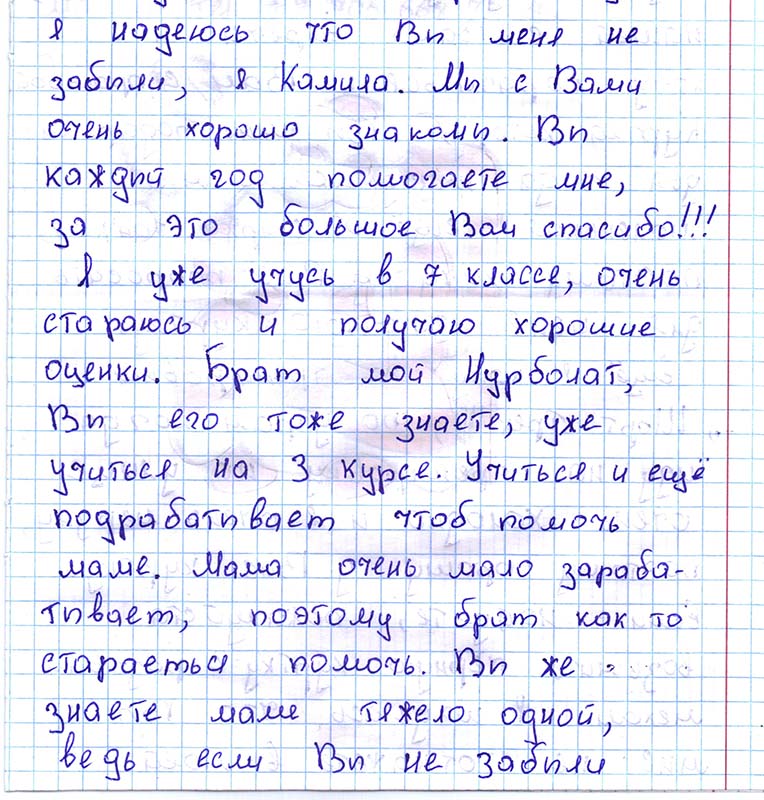 я надеюсь что Вы меня не
забыли, я Камила. Мы с Вами
очень хорошо знакомы. Вы
каждый год помогаете мне,
за это большое Вам спасибо!!!
Я уже учусь в 7 классе, очень
стараюсь и получаю хорошие
оценки. Брат мой Нурболат,
Вы его тоже знаете, уже
учиться на 3 курсе. Учиться и ещё
подрабатывает чтоб помочь
маме. Мама очень мало зараба-
тывает, поэтому брат как то
стараеться помочь. Вы же
знаете маме тяжело одной,
ведь если Вы не забыли